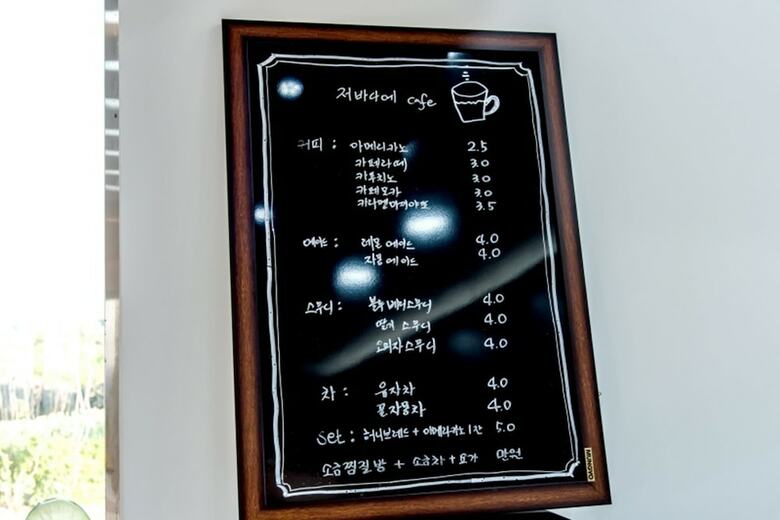 저바다에 cafe
커피 : 아메리카노 2.5
카페라떼 3.0
카푸치노 3.0
카페모카 3.0
카라멜마끼야또 3.5
에이드 : 레몬에이드 4.0
자몽에이드 4.0
스무디 : 블루베리스무디 4.0
딸기 스무디 4.0
오미자스무디 4.0
차 : 유자차 4.0
꿀자몽차 4.0
Set : 허니브레드 + 아메리카노 1잔 5.0
소금찜질방 + 소금차 + 요가 만원
MUNGYO